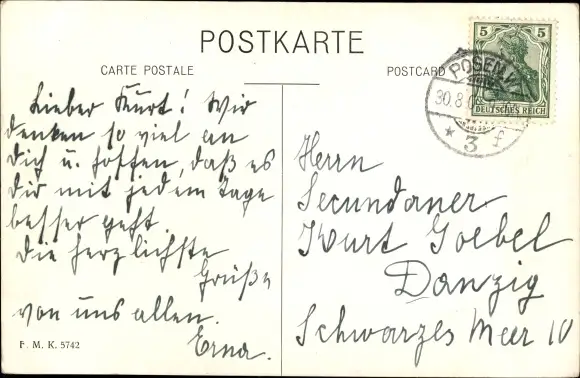 POSTKARTE
CARTE POSTALE
POSTCARD
5 5
DEUTSCHES REICH
POSEN
30.8.0
* 3 f
Lieber Kurt! Wir
denken so viel an
dich u. hoffen, daß es
dir mit jedem Tage
besser geht.
Die herzlichste
Grüße
von uns allen.
Erna.
Herrn
Secundaner
Kurt Goebel
Danzig
Schwarzes Meer 10
F. M. K. 5742